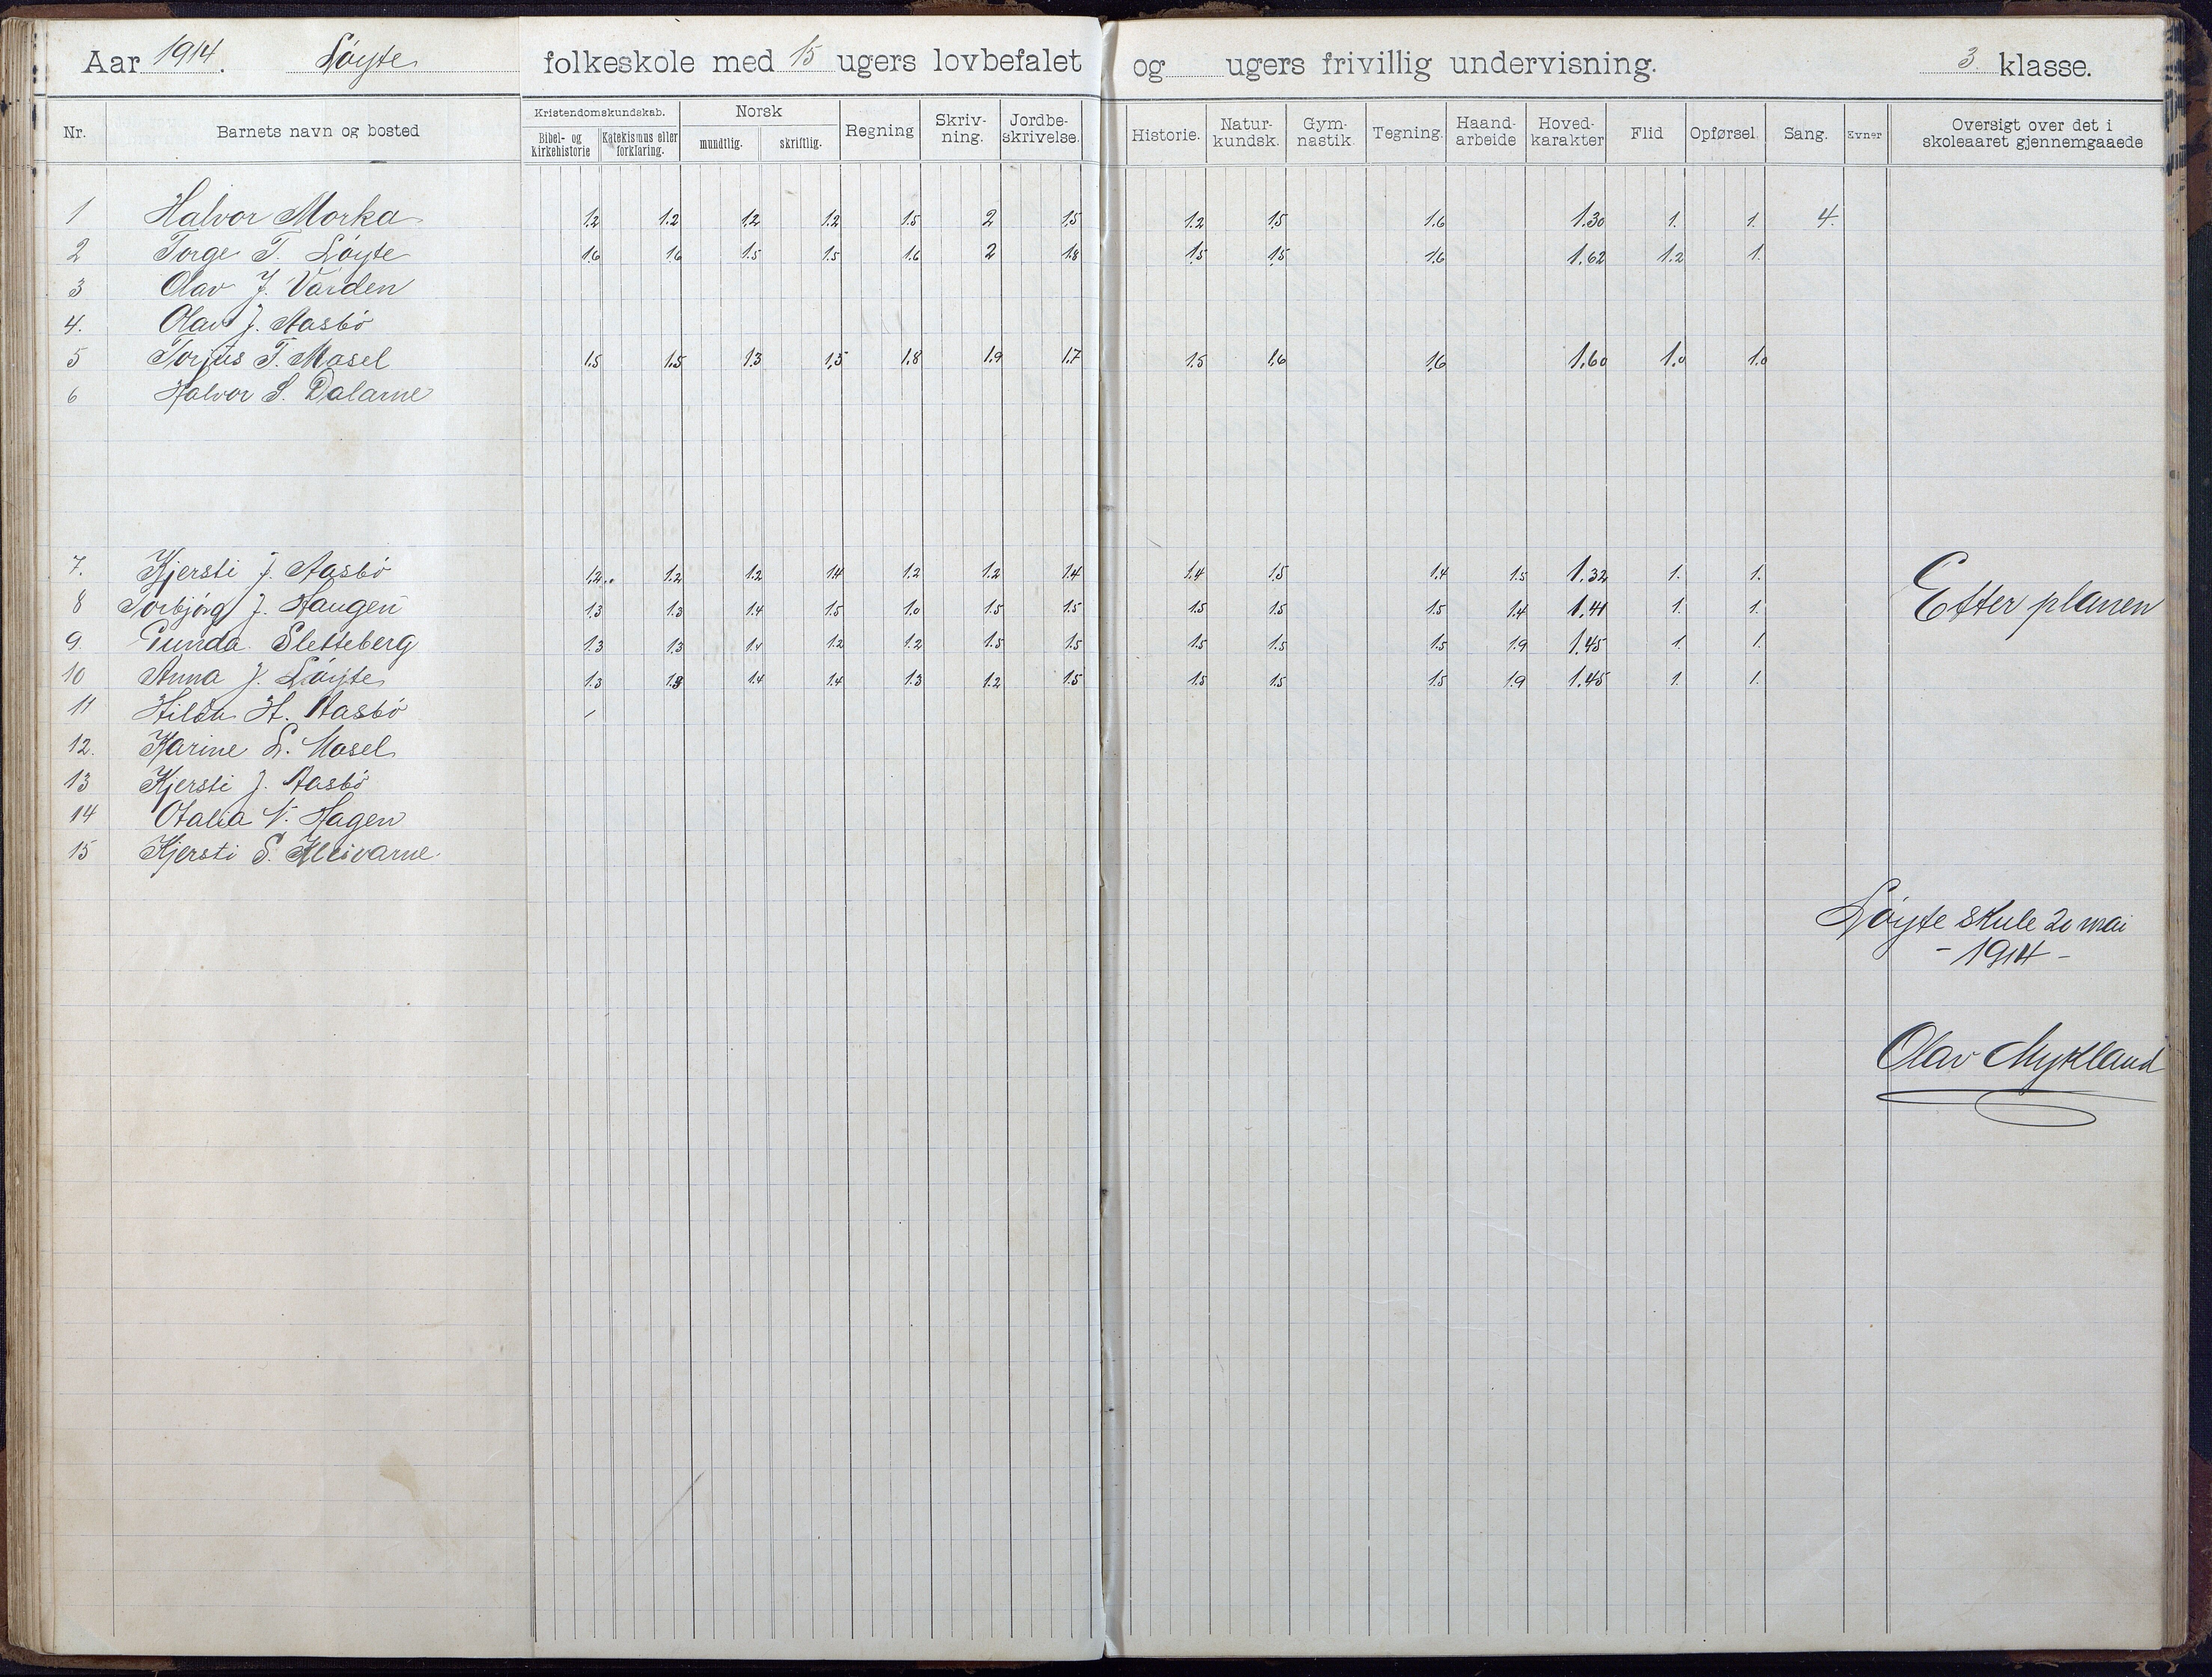 Aar 1914. Löyte folkeskole med 15 ugers lovbefalet og ugers frivillig undervisning. 3. klasse.
Nr. Barnets navn og bosted Kristendomskundskab. Bibel- og Kirkehistorie Katekismus eller forklaring. Norsk mundtlig. skriftlig. Regning Skriv-ning. Jordbe-skrivelse. Historie. Natur-kundsk. Gym-nastik. Tegning. Haand-arbeide Hoved-karakter Flid Opførsel Sang. Evner Oversigt over det i skoleaaret gjennemgaaede
1 Halvor Morka 1.2 1.2 1.2 1.2 1.5 2 1.5 1.2 1.5 1.6 1.30 1. 1. 4.
2 Torge T. Löyte 1.6 1.6 1.5 1.5 1.6 2 1.8 1.5 1.5 1.6 1.62 1.2 1.
3 Olav J. Varden
4. Olav J. Aasbö
5 Torjus T. Mosel 1.5 1.5 1.3 1.5 1.8 1.9 1.7 1.5 1.6 1.6 1.60 1.0 1.0
6 Halvor S. Dalarne
7. Kjersti J. Aasbö 1.2.. 1.2 1.2 1.4 1.2 1.2 1.4 1.4 1.5 1.4 1.5 1.32 1. 1. Etter planen
8 Torbjörg J. Haugen 1.3 1.3 1.4 1.5 1.0 1.5 1.5 1.5 1.5 1.5 1.4 1.41 1. 1.
9. Gunda Sletteberg 1.3 1.3 1.4 1.2 1.2 1.5 1.5 1.5 1.5 1.5 1.9 1.45 1. 1.
10 Anna J. Löyte 1.3 1.3 1.4 1.4 1.3 1.2 1.5 1.5 1.5 1.5 1.9 1.45 1. 1.
11 Hilda H. Aasbö
12. Karine L. Mosel
13 Kjersti J. Aasbö
14 Otalia N. Hagen
15 Kjersti S. Kleivarne
Löyte skule 20 mai
- 1914 -
Olav Mykland